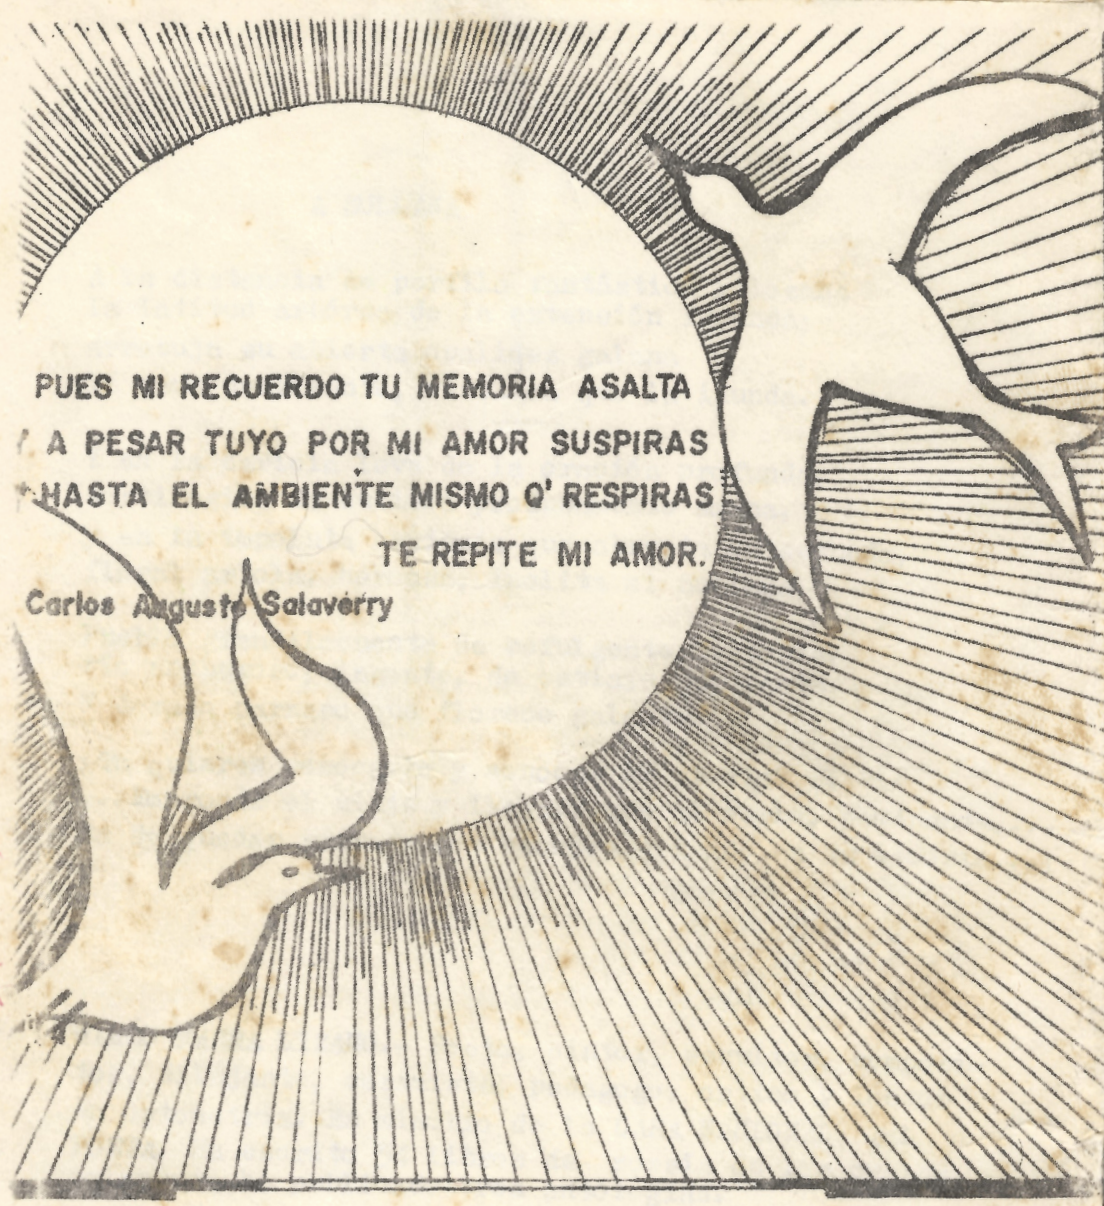 PUES MI RECUERDO TU MEMORIA ASALTA
Y A PESAR TUYO POR MI AMOR SUSPIRAS
Y HASTA EL AMBIENTE MISMO Q' RESPIRAS
TE REPITE MI AMOR.
Carlos Augusto Salaverry